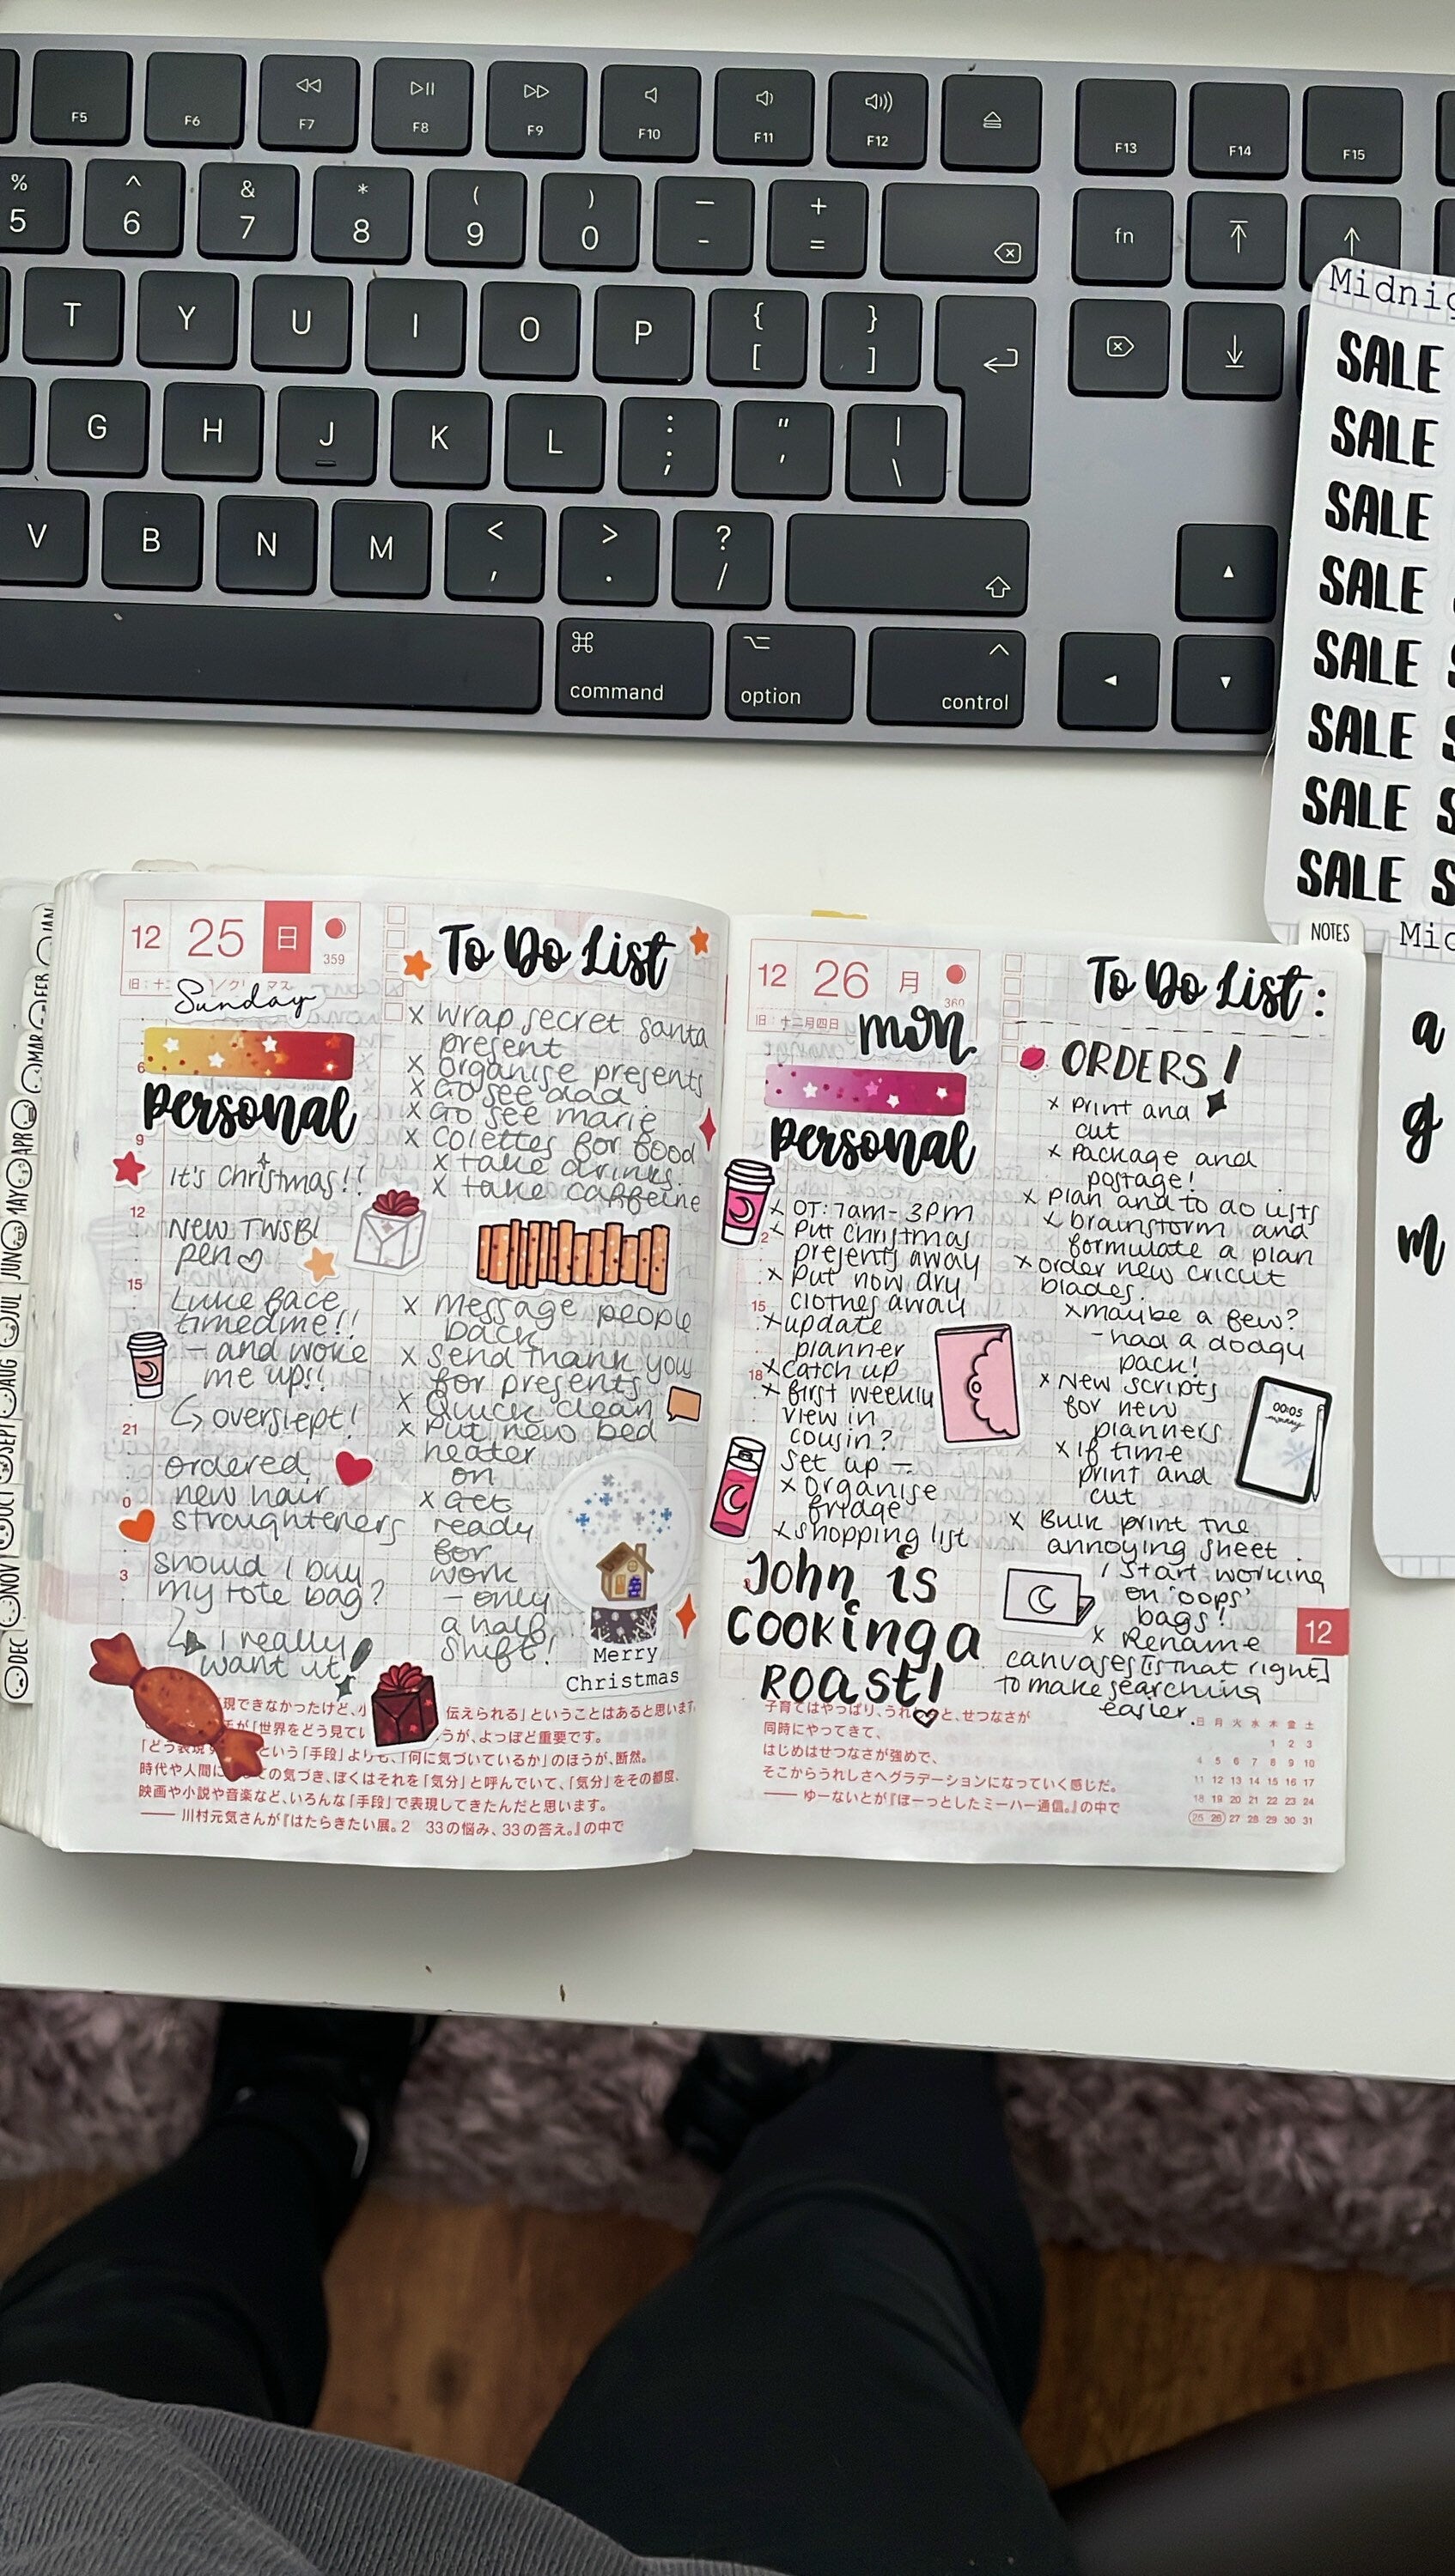 F5
F6
F7
F8
F9
F10
F11
F12
F13
F14
F15
% 5
^ 6
& 7
* 8
( 9
) 0
_ -
+ =
fn
T
Y
U
I
O
P
{ [
} ]
G
H
J
K
L
: ;
" '
| \
V
B
N
M
< ,
> .
? /
⌘ command
⌥ option
^ control
SALE
SALE
SALE
SALE
SALE
SALE
SALE
SALE
NOTES
a
g
m
JAN
FEB
MAR
APR
MAY
JUN
JUL
AUG
SEPT
OCT
NOV
DEC
12 25 日
359
Sunday
6
Personal
9
It's Christmas!!
12
New TWSBI
pen
15
Luke face
timed me!!
- and woke
me up!!
↳ overslept!
21
ordered
new hair
0
straughteners
3
should I buy
my tote bag?
↳ I really
want it!
To Do List
x wrap secret santa
present
x organise presents
x Go see dad
x Go see marie
x Colettes for food
x take drinks.
x take caffeine
x Message people
back
x Send thank you
for presents
x Quick clean
x Put new bed
heater
on
x Get
ready
for
work
- only
a half
shift!
Merry
Christmas
現できなかったけど、
伝えられる」ということはあると思います
が「世界をどう見てい
うが、よっぽど重要です。
「どう表現
という「手段」よりも、「何に気づいているか」のほうが、断然。
時代や人間に
の気づき、ぼくはそれを「気分」と呼んでいて、「気分」をその都度、
映画や小説や音楽など、いろんな「手段」で表現してきたんだと思います。
—— 川村元気さんが『はたらきたい展。2 33の悩み、33の答え。』の中で
12 26 月
360
旧：十二月四日
mon
Personal
x OT: 7am - 3pm
x Put Christmas
presents away
x Put now dry
15
clothes away
x update
planner
18
x catch up
x first weekly
view in
cousin?
Set up -
x organise
fridge
x shopping list
John is
cooking a
ROAST!
To Do List:
ORDERS!
x Print and
cut
x Package and
postage!
x Plan and to do lists
x brainstorm and
formulate a plan
x order new cricut
blades.
x maybe a few?
- had a dodgy
pack!
x New scripts
for new
planners
x If time
print and
cut
00:05
x Bulk print the
annoying sheet.
! Start working
on 'oops'
bags!
x Rename
canvases [is that right]
to make searching
easier.
12
子育てはやっぱり、うれ
と、せつなさが
同時にやってきて、
はじめはせつなさが強めで、
そこからうれしさへグラデーションになっていく感じだ。
—— ゆーないとが『ぼーっとしたミーハー通信。』の中で
日 月 火 水 木 金 土
1 2 3
4 5 6 7 8 9 10
11 12 13 14 15 16 17
18 19 20 21 22 23 24
25 26 27 28 29 30 31